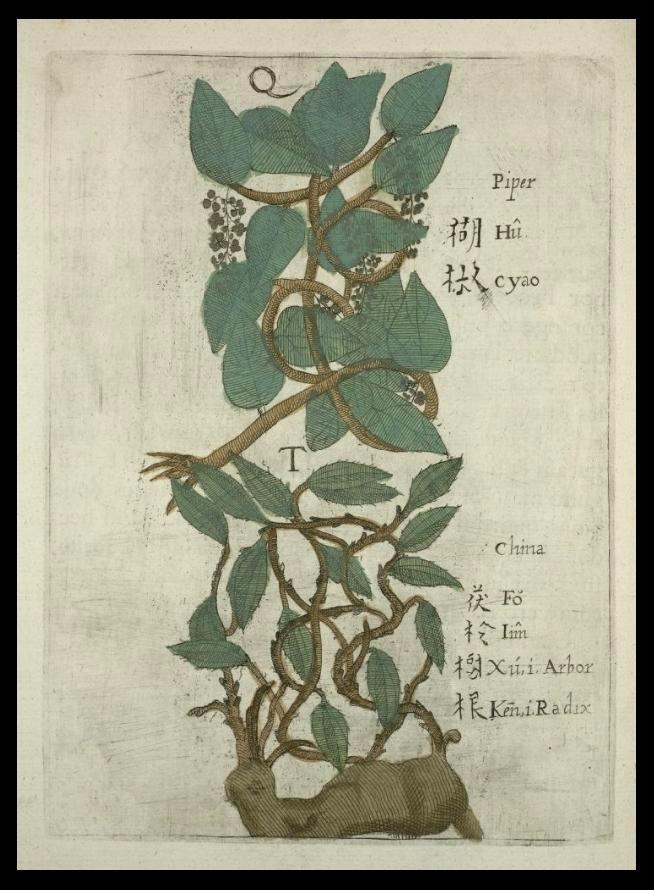 Q
Piper
Hû
椒 cyāo
T
China
茯 Fŏ
柃
樹 Xú,i. Arbor
根 Kēn,i. Radix